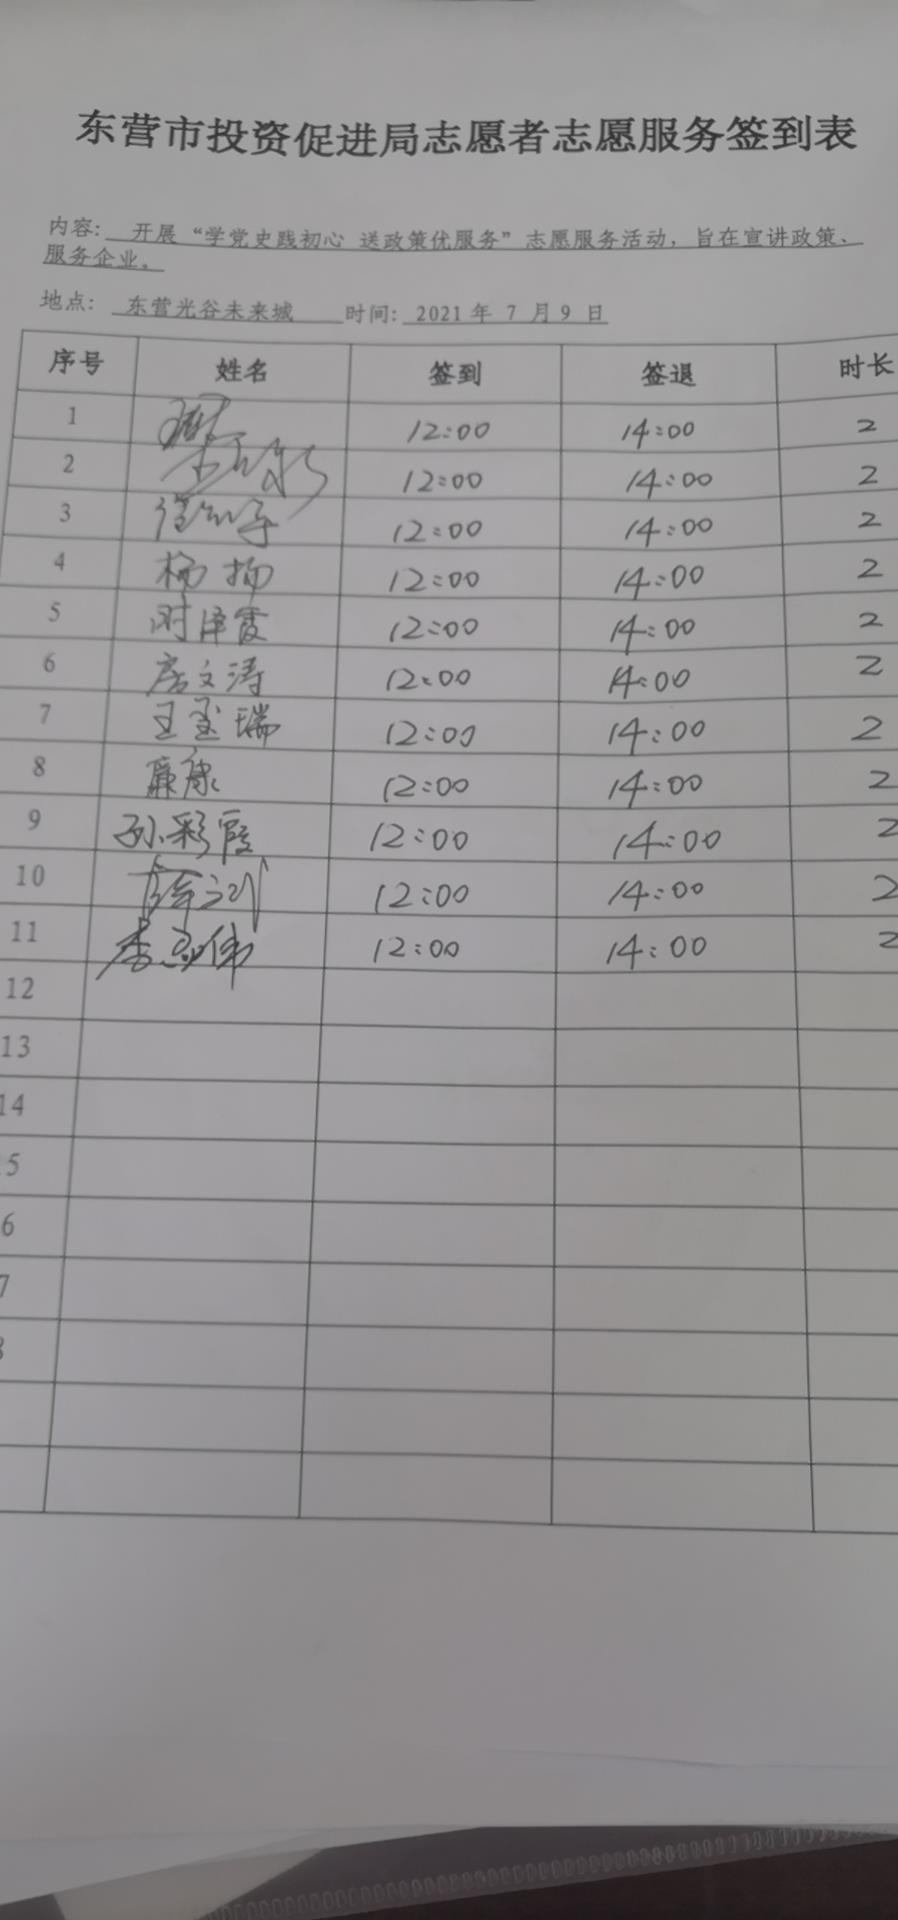 东营市投资促进局志愿者志愿服务签到表
内容: 开展“学党史践初心 送政策优服务”志愿服务活动，旨在宣讲政策、
服务企业。
地点: 东营光谷未来城 时间: 2021 年 7 月 9 日
序号 姓名 签到 签退 时长
1 12:00 14:00 2
2 12:00 14:00 2
3 12:00 14:00 2
4 杨扬 12:00 14:00 2
5 时泽霞 12:00 14:00 2
6 房文涛 12:00 14:00 2
7 王玺瑞 12:00 14:00 2
8 廉康 12:00 14:00 2
9 孙彩霞 12:00 14:00 2
10 12:00 14:00 2
11 李 伟 12:00 14:00 2
12
13
14
5
6
7
8